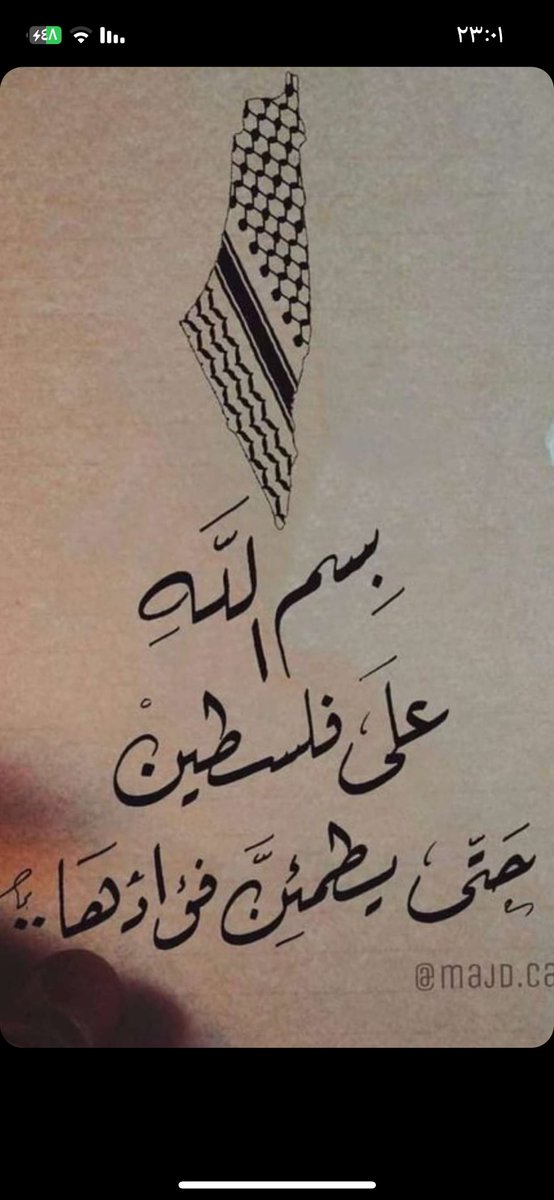 ٢٣:٠١
٤٨
بِسم اللَّهِ
عَلَى فلسطين
حَتّى يطمئِنَّ فؤادُهَا..
@majd.ca